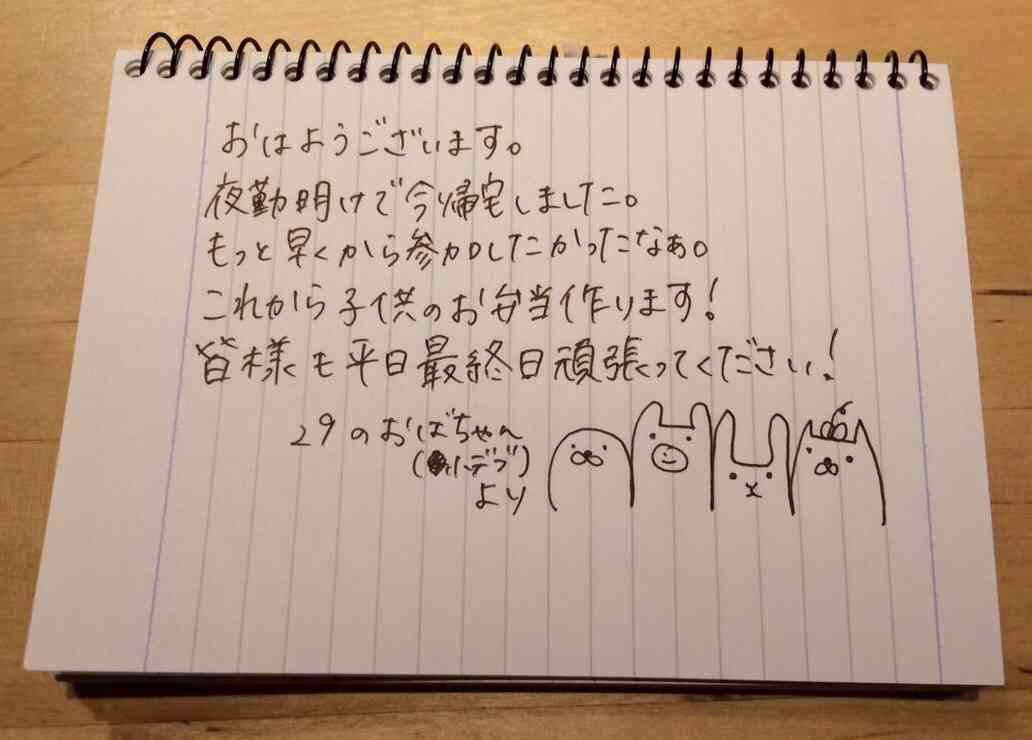 おはようございます。
夜勤明けで今帰宅しました。
もっと早くから参加したかったなぁ。
これから子供のお弁当作ります!
皆様も平日最終日頑張ってください!
29のおばちゃん
(小デブ)
より